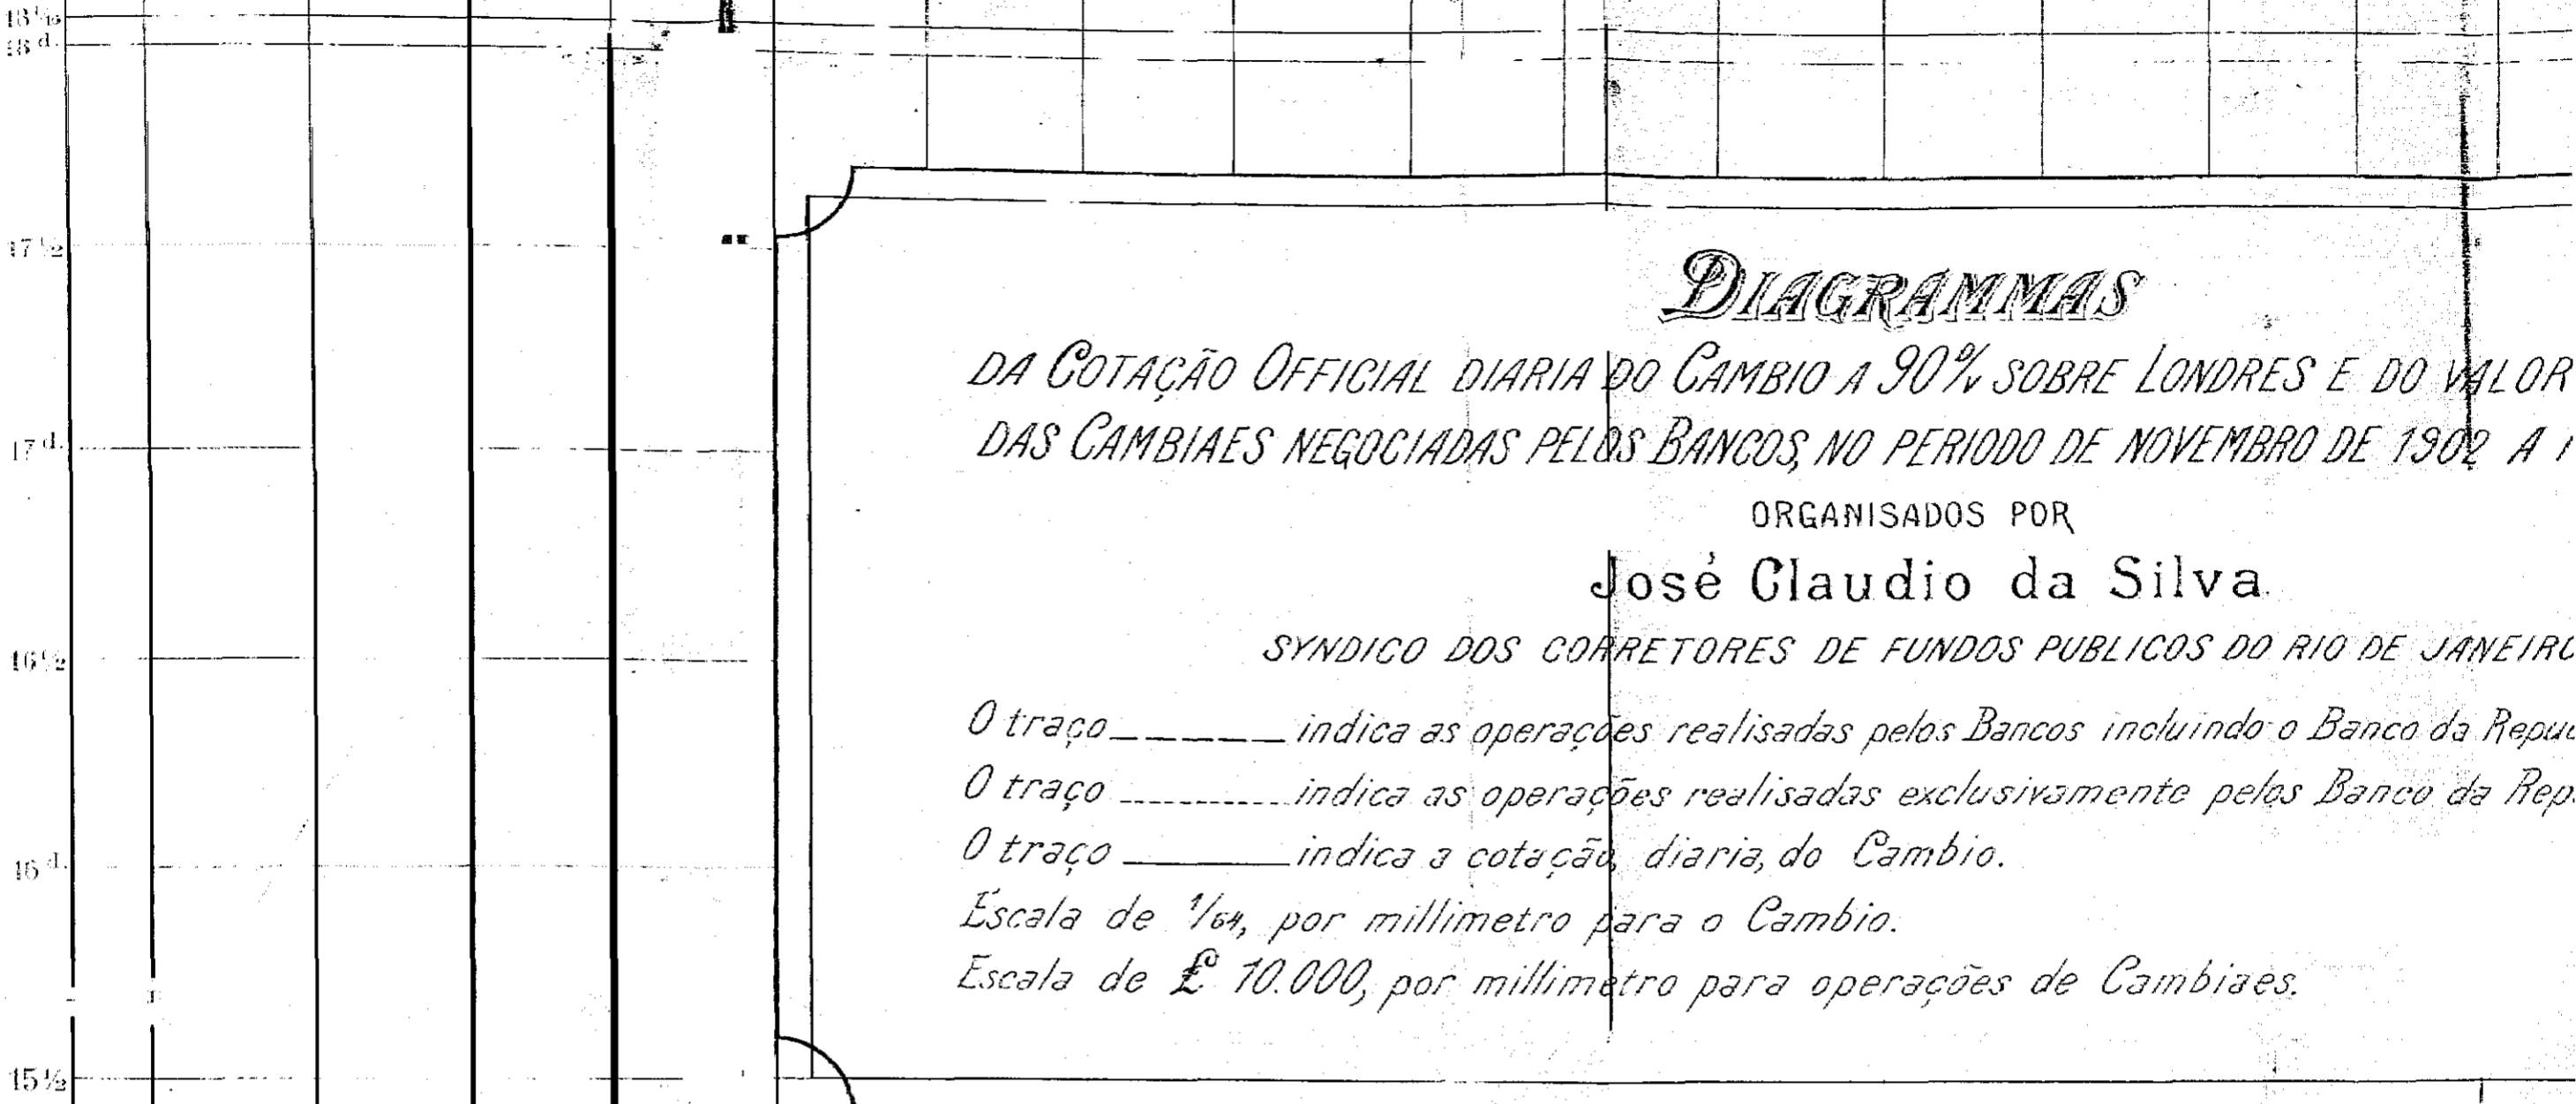 18 1/16
18 d.
17 1/2
17 d.
16 1/2
16 d.
15 1/2
DIAGRAMMAS
DA COTAÇÃO OFFICIAL DIARIA DO CAMBIO A 90 d/v SOBRE LONDRES E DO VALOR
DAS CAMBIAES NEGOCIADAS PELOS BANCOS, NO PERIODO DE NOVEMBRO DE 1902 A
ORGANISADOS POR
José Claudio da Silva
SYNDICO DOS CORRETORES DE FUNDOS PUBLICOS DO RIO DE JANEIRO
O traço _ _ _ _ _ indica as operações realisadas pelos Bancos incluindo o Banco da Repu
O traço ............ indica as operações realisadas exclusivamente pelos Banco da Rep
O traço ______ indica a cotação, diaria, do Cambio.
Escala de 1/64, por millimetro para o Cambio.
Escala de £ 10.000, por millimetro para operações de Cambiaes.